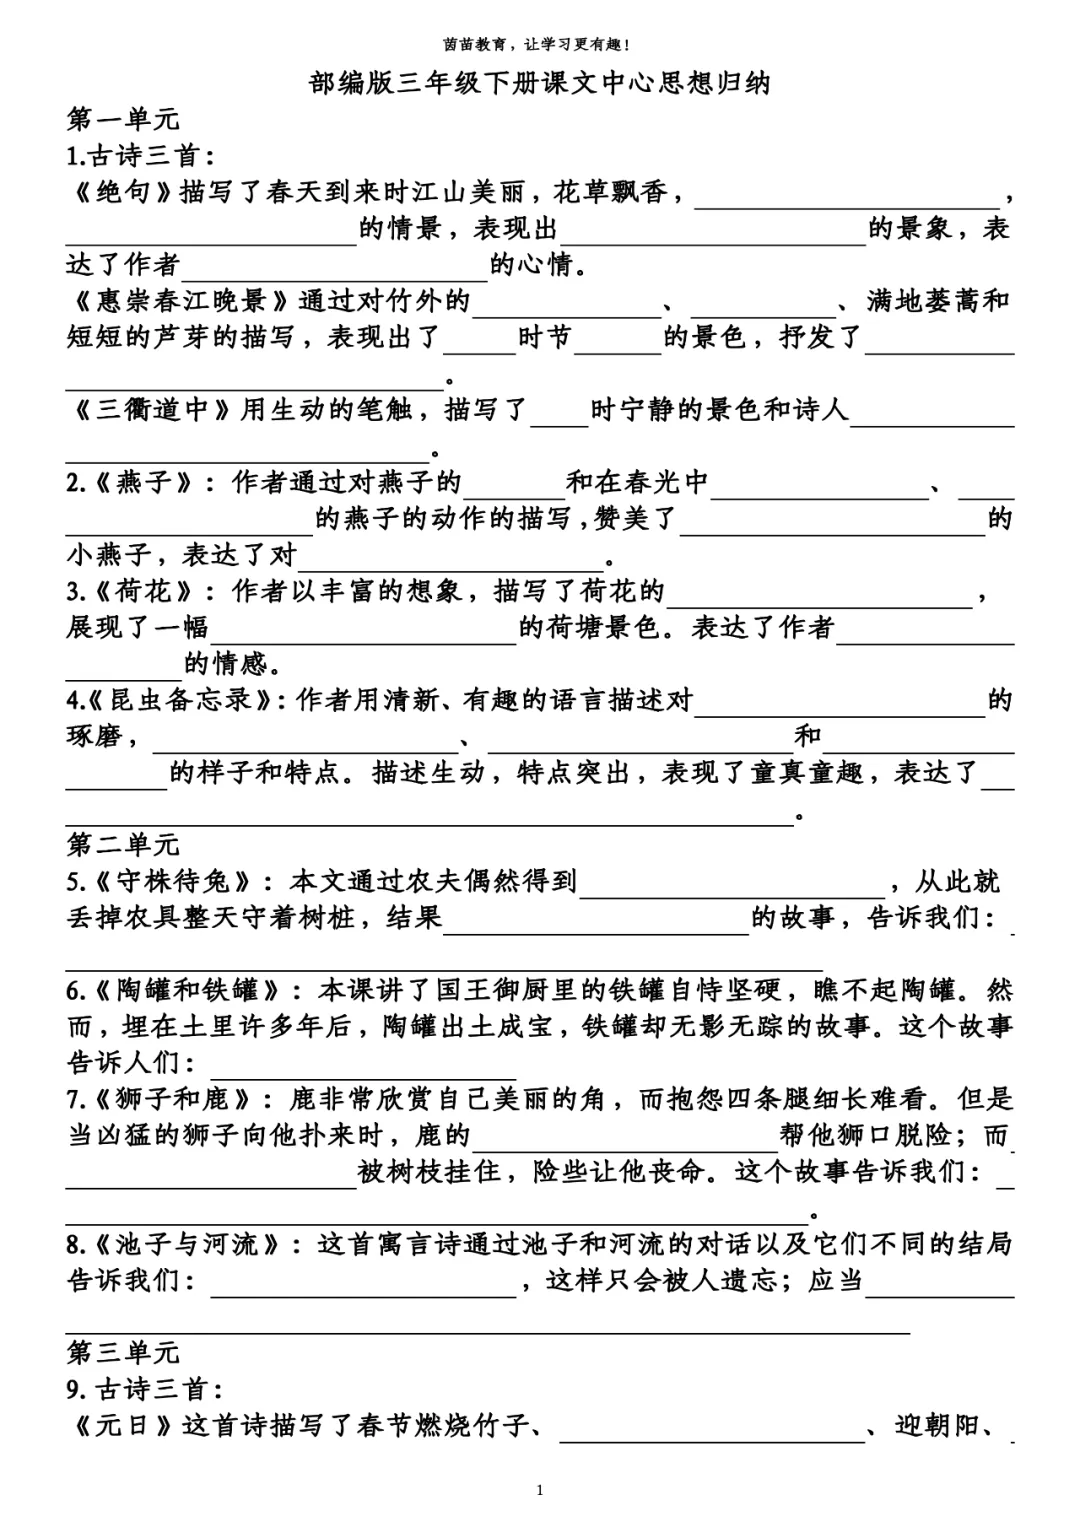 茵苗教育，让学习更有趣！
部编版三年级下册课文中心思想归纳
第一单元
1.古诗三首：
《绝句》描写了春天到来时江山美丽，花草飘香，____________________，
____________________的情景，表现出____________________的景象，表
达了作者____________________的心情。
《惠崇春江晚景》通过对竹外的____________、__________、满地蒌蒿和
短短的芦芽的描写，表现出了_____时节______的景色，抒发了__________
__________________________。
《三衢道中》用生动的笔触，描写了____时宁静的景色和诗人___________
_________________________。
2.《燕子》：作者通过对燕子的_______和在春光中_______________、____
_________________的燕子的动作的描写，赞美了_____________________的
小燕子，表达了对_____________________。
3.《荷花》：作者以丰富的想象，描写了荷花的_____________________，
展现了一幅_____________________的荷塘景色。表达了作者____________
________的情感。
4.《昆虫备忘录》：作者用清新、有趣的语言描述对____________________的
琢磨，_____________________、_____________________和_____________
_______的样子和特点。描述生动，特点突出，表现了童真童趣，表达了__
__________________________________________________。
第二单元
5.《守株待兔》：本文通过农夫偶然得到_____________________，从此就
丢掉农具整天守着树桩，结果_____________________的故事，告诉我们：_
____________________________________________________
6.《陶罐和铁罐》：本课讲了国王御厨里的铁罐自恃坚硬，瞧不起陶罐。然
而，埋在土里许多年后，陶罐出土成宝，铁罐却无影无踪的故事。这个故事
告诉人们：_____________________
7.《狮子和鹿》：鹿非常欣赏自己美丽的角，而抱怨四条腿细长难看。但是
当凶猛的狮子向他扑来时，鹿的_____________________帮他狮口脱险；而_
____________________被树枝挂住，险些让他丧命。这个故事告诉我们：__
___________________________________________________。
8.《池子与河流》：这首寓言诗通过池子和河流的对话以及它们不同的结局
告诉我们：_____________________，这样只会被人遗忘；应当__________
__________________________________________________________
第三单元
9. 古诗三首：
《元日》这首诗描写了春节燃烧竹子、_____________________、迎朝阳、_
1